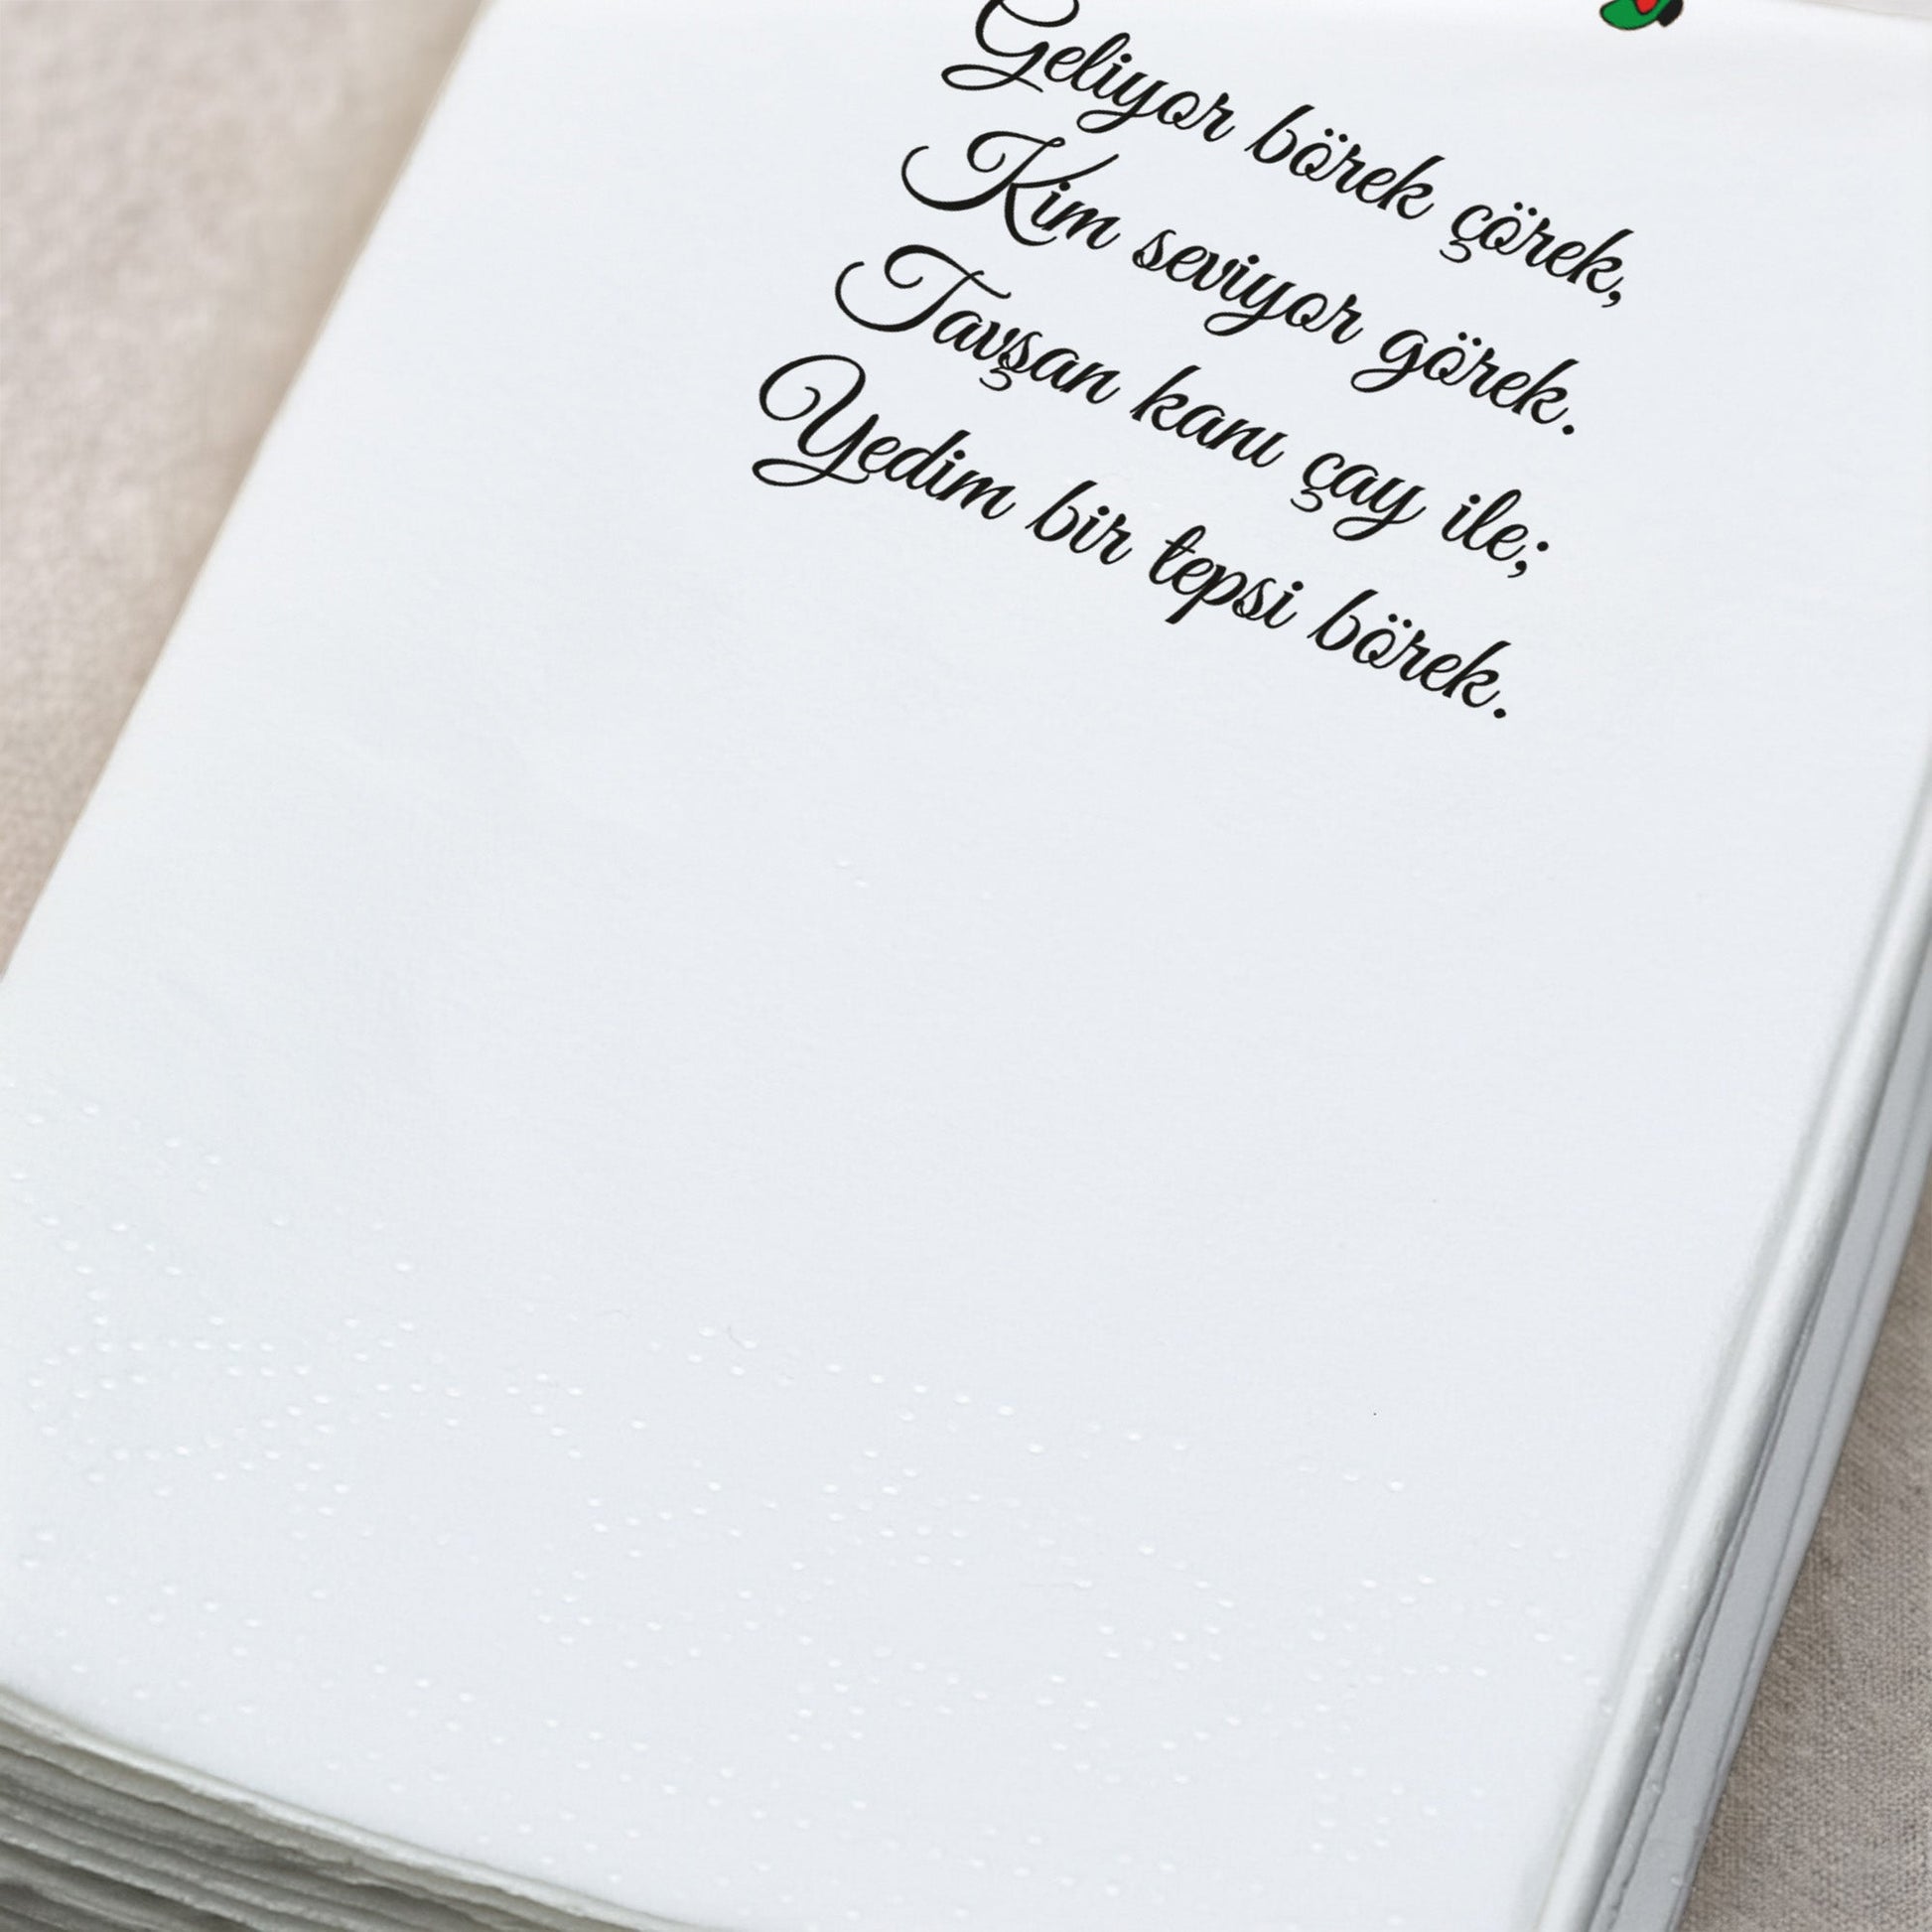 Geliyor börek çörek,
Kim seviyor görek.
Tavşan kanı çay ile;
Yedim bir tepsi börek.